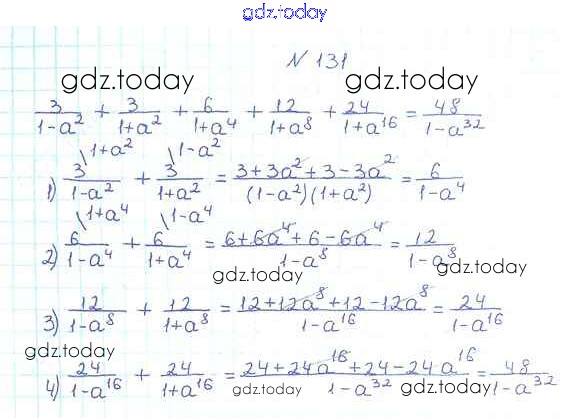 gdz.today
N 131
gdz.today gdz.today
3/(1-a²) + 3/(1+a²) + 6/(1+a⁴) + 12/(1+a⁸) + 24/(1+a¹⁶) = 48/(1-a³²)
1) 3\1+a²/(1-a²) + 3\1-a²/(1+a²) = (3+3a²+3-3a²)/((1-a²)(1+a²)) = 6/(1-a⁴)
2) 6\1+a⁴/(1-a⁴) + 6\1-a⁴/(1+a⁴) = (6+6a⁴+6-6a⁴)/(1-a⁸) = 12/(1-a⁸)
gdz.today gdz.today
3) 12/(1-a⁸) + 12/(1+a⁸) = (12+12a⁸+12-12a⁸)/(1-a¹⁶) = 24/(1-a¹⁶)
gdz.today
4) 24/(1-a¹⁶) + 24/(1+a¹⁶) = (24+24a¹⁶+24-24a¹⁶)/(1-a³²) = 48/(1-a³²)
gdz.today gdz.today